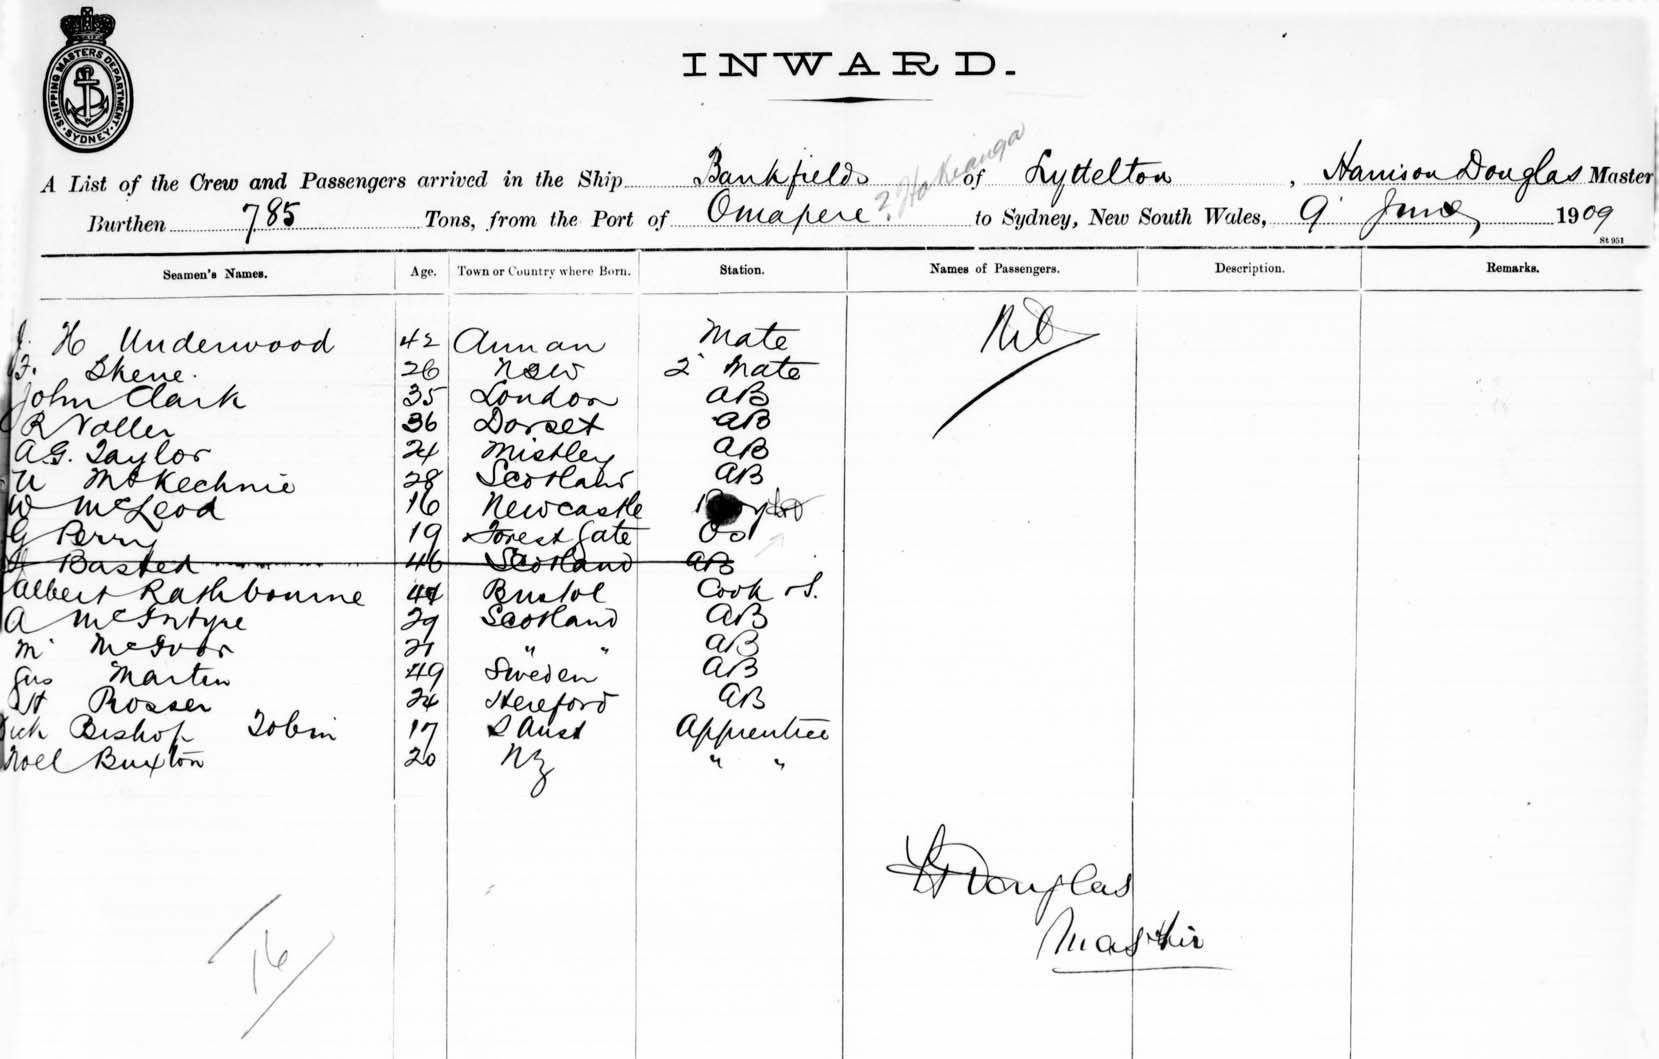 SHIPPING MASTERS DEPARTMENT · SYDNEY ·
INWARD.
A List of the Crew and Passengers arrived in the Ship Bankfields of Lyttelton, Harrison Douglas Master
? Hokianga
Burthen 785 Tons, from the Port of Omapere to Sydney, New South Wales, 9 June 1909
St 951
Seamen's Names. Age. Town or Country where Born. Station. Names of Passengers. Description. Remarks.
J. H Underwood 42 Annan Mate Nil
F. Skene. 26 NSW 2 Mate
John Clark 35 London AB
R Voller 36 Dorset AB
A.G. Taylor 24 Mistley AB
McKechnie 28 Scotland AB
W McLeod 16 Newcastle
G Perry 19 Forest Gate OS
Basted 46 Scotland AB
Albert Rathbourne Bristol Cook & S.
A McIntyre 29 Scotland AB
M McIvor 21 " " AB
Gus Marten 49 Sweden AB
H Rosser 24 Hereford AB
Dick Bishop Tobin 17 S Aust Apprentice
Noel Buxton 20 NZ " "
H Douglas
Master
16